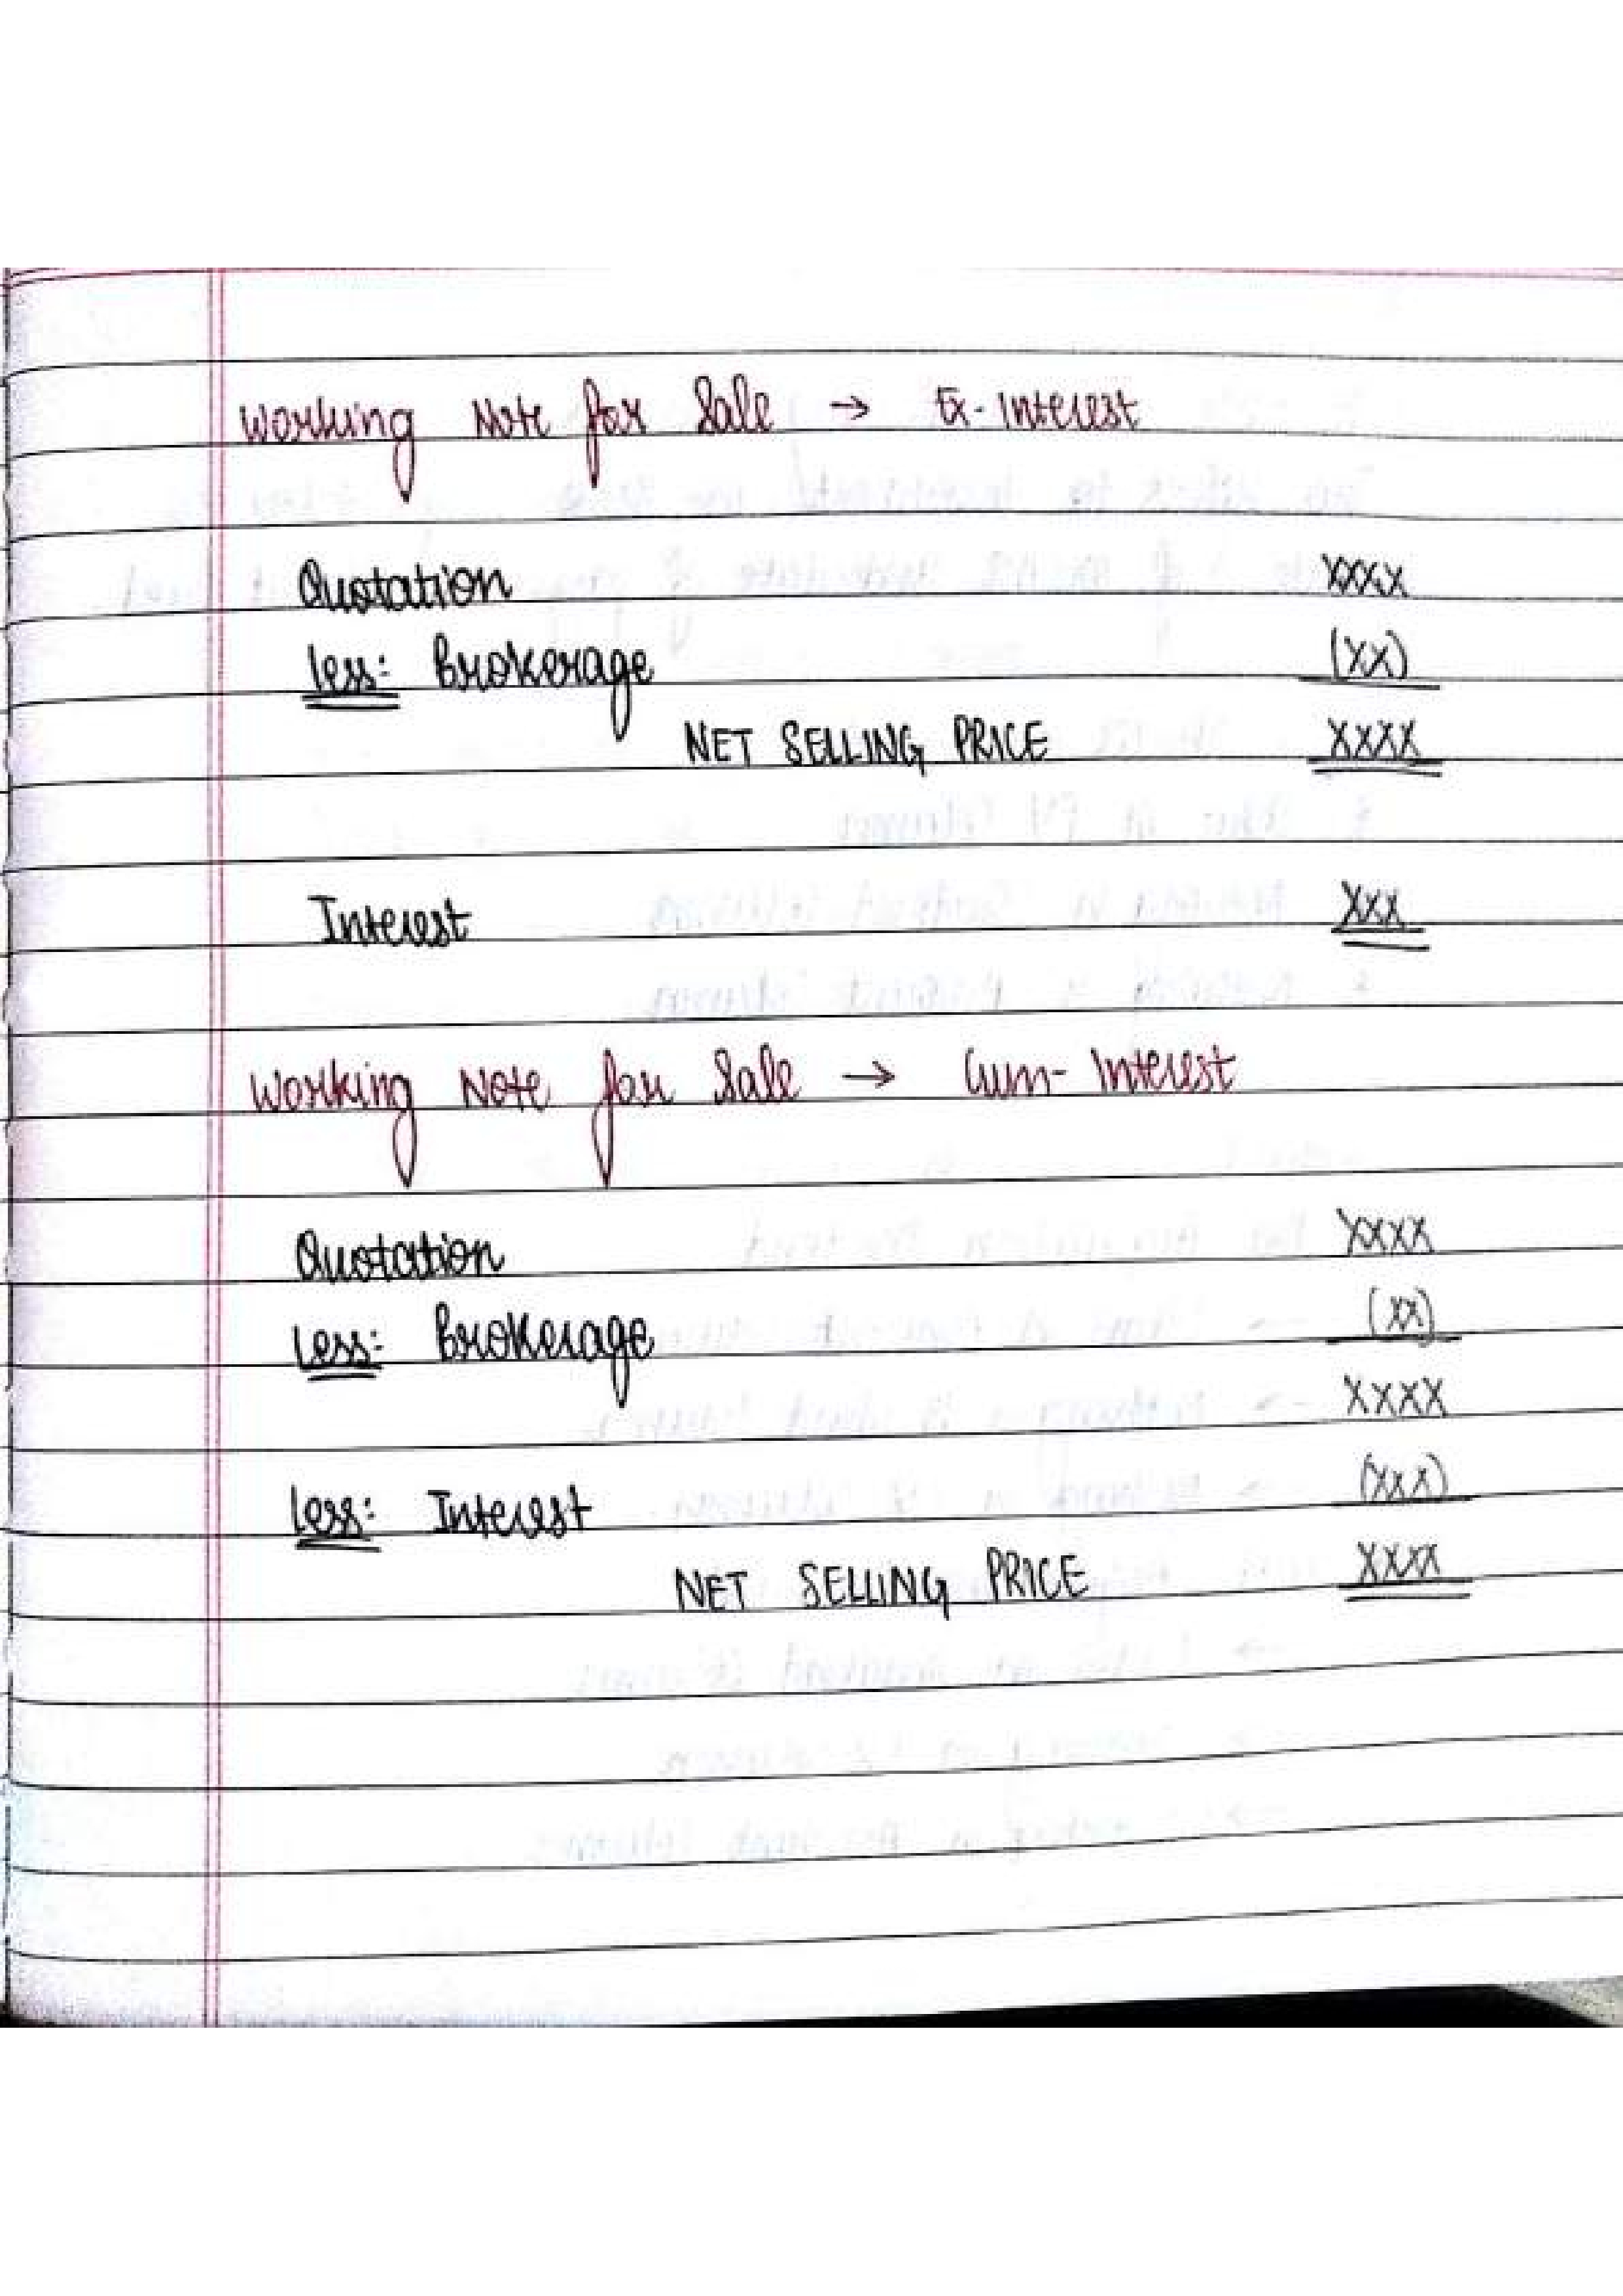 Working Note for Sale → Ex-Interest
Quotation XXXX
Less: Brokerage (XX)
NET SELLING PRICE XXXX
Interest XXX
Working Note for Sale → Cum-Interest
Quotation XXXX
Less: Brokerage (XX)
XXXX
Less: Interest (XXX)
NET SELLING PRICE XXXX